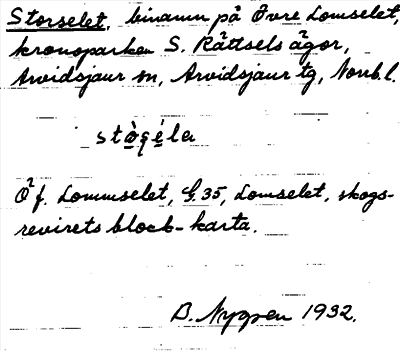 Storselet, binamn på Övre Lomselet,
kronoparken S. Rättsels ägor,
Arvidsjaur sn, Arvidsjaur tg, Norrb. l.
Ö f. Lommselet, G. 35, Lomselet, skogs-
revirets block-karta.
B. Nygren 1932.